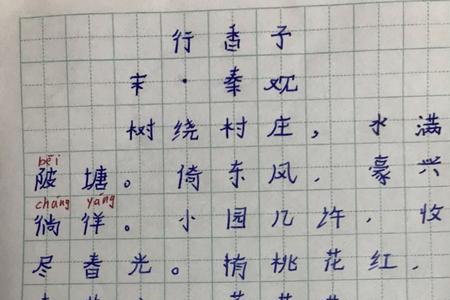 行香子
宋·秦观
树绕村庄，水满
bēi
陂塘。倚东风，豪兴
cháng yáng
徜徉。小园几许，收
尽春光。有桃花红，